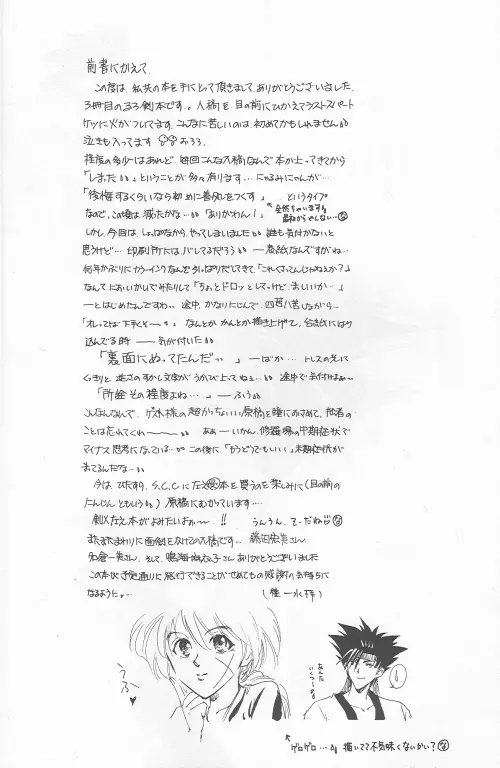 前書にかえて
この度は、私共の本を手にとって頂きまして、ありがとうございました。
3冊目のるろ剣本です。入稿を目の前にひかえてラストスパート
ケツに火がついてます。こんなに苦しいのは、初めてかもしれません
泣きも入ってます おろろ。
程度の多少はあれど、毎回こんな入稿なんで本が上ってきてから
「しまった」ということが多々有ります…
「後悔するくらいなら初めに善処をつくす」 というタイプ
なので、この頃は減ったかな…「ありがわん!」
全然ちゃいます
しかし、今回は、しょっぱなから、やってしまいました 誰も気付かないと
思うけど… 印刷所には、バレてるだろう ― 表紙なんですがね…
何年かぶりにカラーインクなんて引っぱりだしてきて「これくさってんじゃねェか?」
なんて、においかいでみたりして「ちょっとドロッとしてっけど、ましいいか…」
―とはじめたんですわ。途中、かなりにじんで、四苦八苦しながら…
「オレってば下手く〜」なんとか かんとか描き上げて、台紙にはり
込んでる時 ― 気が付いた
「裏面にぬってたんだっ」―ばか…
くっきりと、逆さのすかし文字がうかび上ってねェ… 途中で気付けよォ〜
「所詮その程度よね…」―ふっ
こんななんなんで、ゲスト様の超かっちょいい原稿を瞳におさめて、他者の
ことは忘れてくれ〜 ああ―いかん、修羅場の中期症状で
マイナス思考になっている… この後に、「もうどうでもいい」末期症状が
まってるんだな…
今は、ひたすら、S.C.Cに左之本を買うのを楽しみに(目の前の
にんじんともいう)原稿にむかっています…
剣×左之本がよみたいよォ〜!! うんうん、
またまたまわりに面倒をかけての入稿です。藤田宏美さん、
、そして、鳴海さんありがとうございました
このたび予定通りに発行できることがせめてもの感謝の気持ちに
なるように。
うふ♥
ゲロゲロ… 描いてて不気味くないかい?